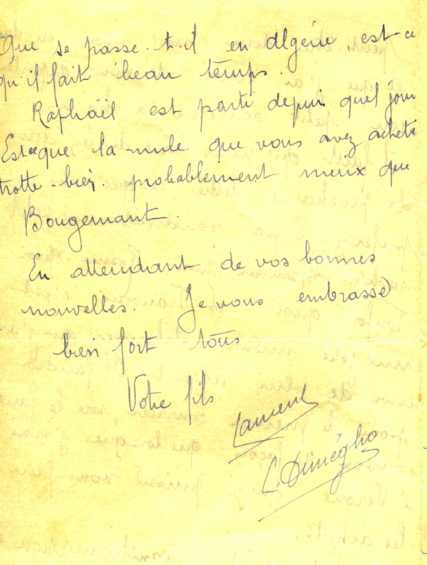 Que se passe-t-il en Algérie est ce
qu'il fait beau temps.
Raphaël est parti depuis quel jour
Esteque la mule que vous avez acheté
trotte bien. probablement mieux que
Bougemant.
En attendant de vos bonnes
nouvelles. Je vous embrasse
bien fort tous
Votre fils
Laurent
L. Diméglio